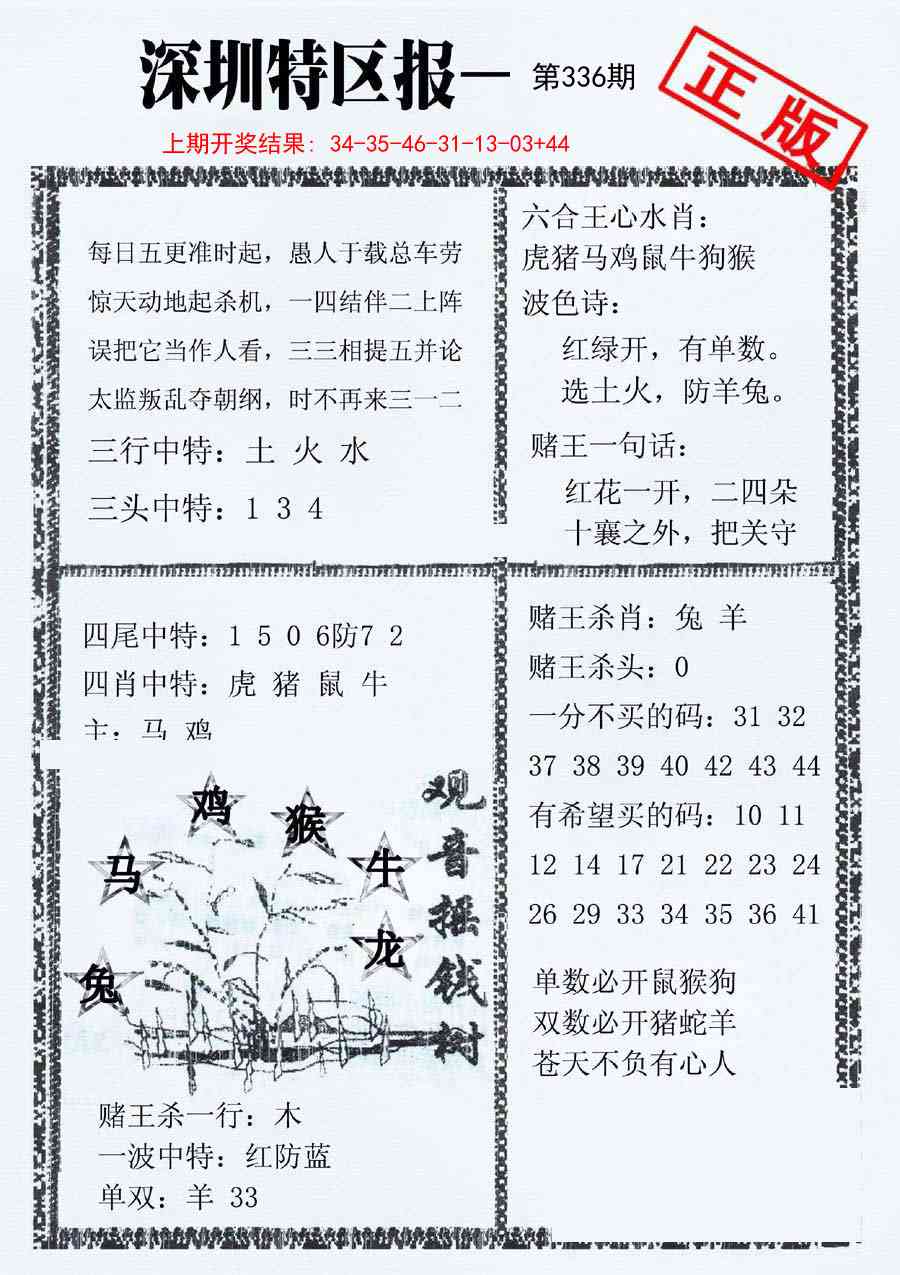 深圳特区报一 第336期
正版
上期开奖结果: 34-35-46-31-13-03+44
每日五更准时起，愚人于载总车劳
惊天动地起杀机，一四结伴二上阵
误把它当作人看，三三相提五并论
太监叛乱夺朝纲，时不再来三一二
三行中特：土 火 水
三头中特：1 3 4
六合王心水肖：
虎猪马鸡鼠牛狗猴
波色诗：
红绿开，有单数。
选土火，防羊兔。
赌王一句话：
红花一开，二四朵
十襄之外，把关守
四尾中特：1 5 0 6防7 2
四肖中特：虎 猪 鼠 牛
主：马 鸡
鸡
猴
马
牛
龙
兔
观音摇钱树
赌王杀一行：木
一波中特：红防蓝
单双：羊 33
赌王杀肖：兔 羊
赌王杀头：0
一分不买的码：31 32
37 38 39 40 42 43 44
有希望买的码：10 11
12 14 17 21 22 23 24
26 29 33 34 35 36 41
单数必开鼠猴狗
双数必开猪蛇羊
苍天不负有心人